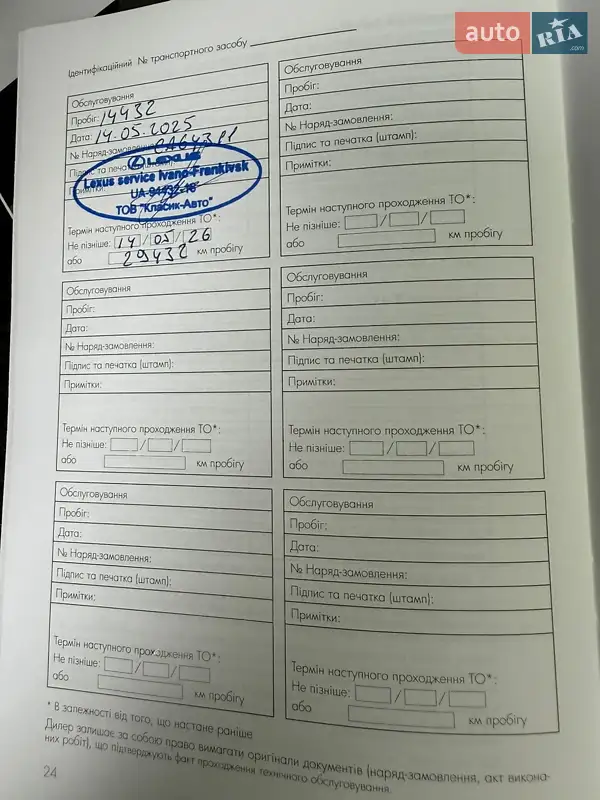 auto RIA.com
Ідентифікаційний № транспортного засобу
Обслуговування
Пробіг: 14432
Дата: 14.05.2025
№ Наряд-замовлення:
Підпис та печатка (штамп):
LEXUS
Lexus service Ivano-Frankivsk
UA-94432-16
ТОВ "Класик-Авто"
Термін наступного проходження ТО*:
Не пізніше: 14/05/26
або 29432 км пробігу
Обслуговування
Пробіг:
Дата:
№ Наряд-замовлення:
Підпис та печатка (штамп):
Примітки:
Термін наступного проходження ТО*:
Не пізніше: / /
або км пробігу
Обслуговування
Пробіг:
Дата:
№ Наряд-замовлення:
Підпис та печатка (штамп):
Примітки:
Термін наступного проходження ТО*:
Не пізніше: / /
або км пробігу
Обслуговування
Пробіг:
Дата:
№ Наряд-замовлення:
Підпис та печатка (штамп):
Примітки:
Термін наступного проходження ТО*:
Не пізніше: / /
або км пробігу
Обслуговування
Пробіг:
Дата:
№ Наряд-замовлення:
Підпис та печатка (штамп):
Примітки:
Термін наступного проходження ТО*:
Не пізніше: / /
або км пробігу
Обслуговування
Пробіг:
Дата:
№ Наряд-замовлення:
Підпис та печатка (штамп):
Примітки:
Термін наступного проходження ТО*:
Не пізніше: / /
або км пробігу
* В залежності від того, що настане раніше
Дилер залишає за собою право вимагати оригінали документів (наряд-замовлення, акт викона-
них робіт), що підтверджують факт проходження технічного обслуговування.
24